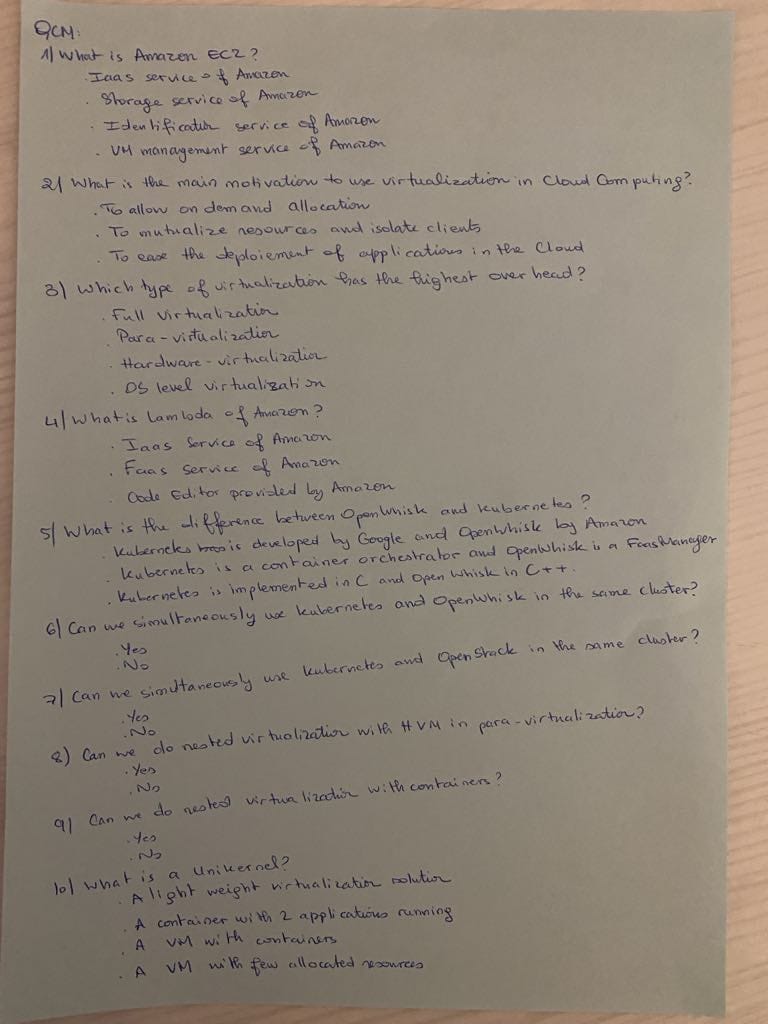 QCM:
1) What is Amazon EC2?
. Iaas service of Amazon
. Storage service of Amazon
. Identification service of Amazon
. VM management service of Amazon
2) What is the main motivation to use virtualization in Cloud Computing?
. To allow on demand allocation
. To mutualize resources and isolate clients
. To ease the deploiement of applications in the Cloud
3) Which type of virtualization has the highest over head?
. Full virtualization
. Para-virtualization
. Hardware-virtualization
. OS level virtualization
4) What is Lambda of Amazon?
. Iaas Service of Amazon
. Faas service of Amazon
. Code Editor provided by Amazon
5) What is the difference between OpenWhisk and kubernetes?
. Kubernetes is developed by Google and OpenWhisk by Amazon
. Kubernetes is a container orchestrator and OpenWhisk is a FaasManager
. Kubernetes is implemented in C and Open Whisk in C++.
6) Can we simultaneously use kubernetes and OpenWhisk in the same cluster?
. Yes
. No
7) Can we simultaneously use kubernetes and OpenStack in the same cluster?
. Yes
. No
8) Can we do nested virtualization with HVM in para-virtualization?
. Yes
. No
9) Can we do nested virtualization with containers?
. Yes
. No
10) What is a Unikernel?
. A light weight virtualization solution
. A container with 2 applications running
. A VM with containers
. A VM with few allocated resources